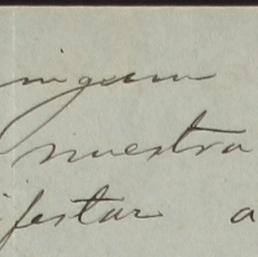 ingun
nuestra
ifestar a